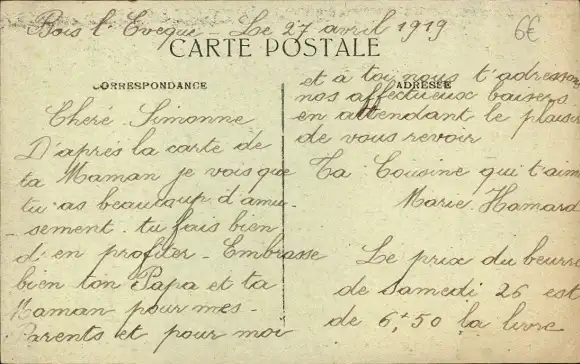 Bois l'Eveque - Le 27 avril 1919
6€
CARTE POSTALE
CORRESPONDANCE
Cheré Simonne
D'aprés la carte de
ta Maman je vois que
tu as beaucoup d'amu-
-sement. tu fais bien
d'en profiter - Embrasse
bien ton Papa et ta
Maman pour mes-
Parents et pour moi
ADRESSE
et à toi nous t'adressons
nos affectueux baisers
en attendant le plaisir
de vous revoir
Ta Cousine qui t'aime
Marie Hamard
Le prix du beurre
de Samedi 26 est
de 6,50 la livre